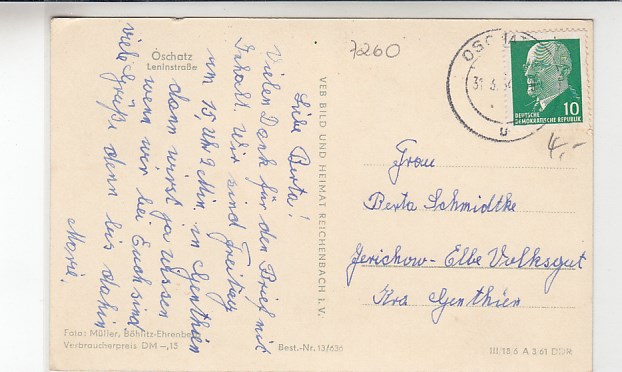 Oschatz
Leninstraße
Liebe Berta!
Vielen Dank für den Brief mit
Inhalt. Wir sind Freitag
um 15 Uhr 2 Min. in Genthin
dann wirst ja wissen
wenn wir bei Euch sind
viele Grüße denn bis dahin
Marie.
Foto: Müller, Böhlitz-Ehrenberg
Verbraucherpreis DM -,15
VEB BILD UND HEIMAT REICHENBACH I. V.
Best.-Nr. 13/636
70260
OSCHATZ
31.3.
u
10
DEUTSCHE
DEMOKRATISCHE REPUBLIK
4,-
Frau
Berta Schmidtke
Jerichow-Elbe Volksgut
Krs Genthien
III/18/6 A 3/61 DDR